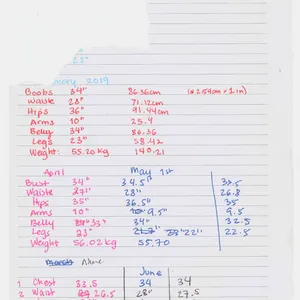 2019
Boobs 34" 86.36cm (* 2.54cm × 1in)
Waist 28" 71.12cm
Hips 36" 91.44cm
Arms 10" 25.4
Belly 34" 86.36
Legs 23" 58.42
Weight: 55.20 kg 140.21
April May 1st
Bust 34" 34.5" 33.5
Waist 27" 28" 26.8
Hips 35" 36.5" 35
Arms 10" 9.5" 9.5
Belly 33" 34" 32.5
Legs 23" 22" 22.5
Weight 56.02 kg 55.70
June
1 Chest 33.5 34 34
2 Waist 26.5 28" 27.5